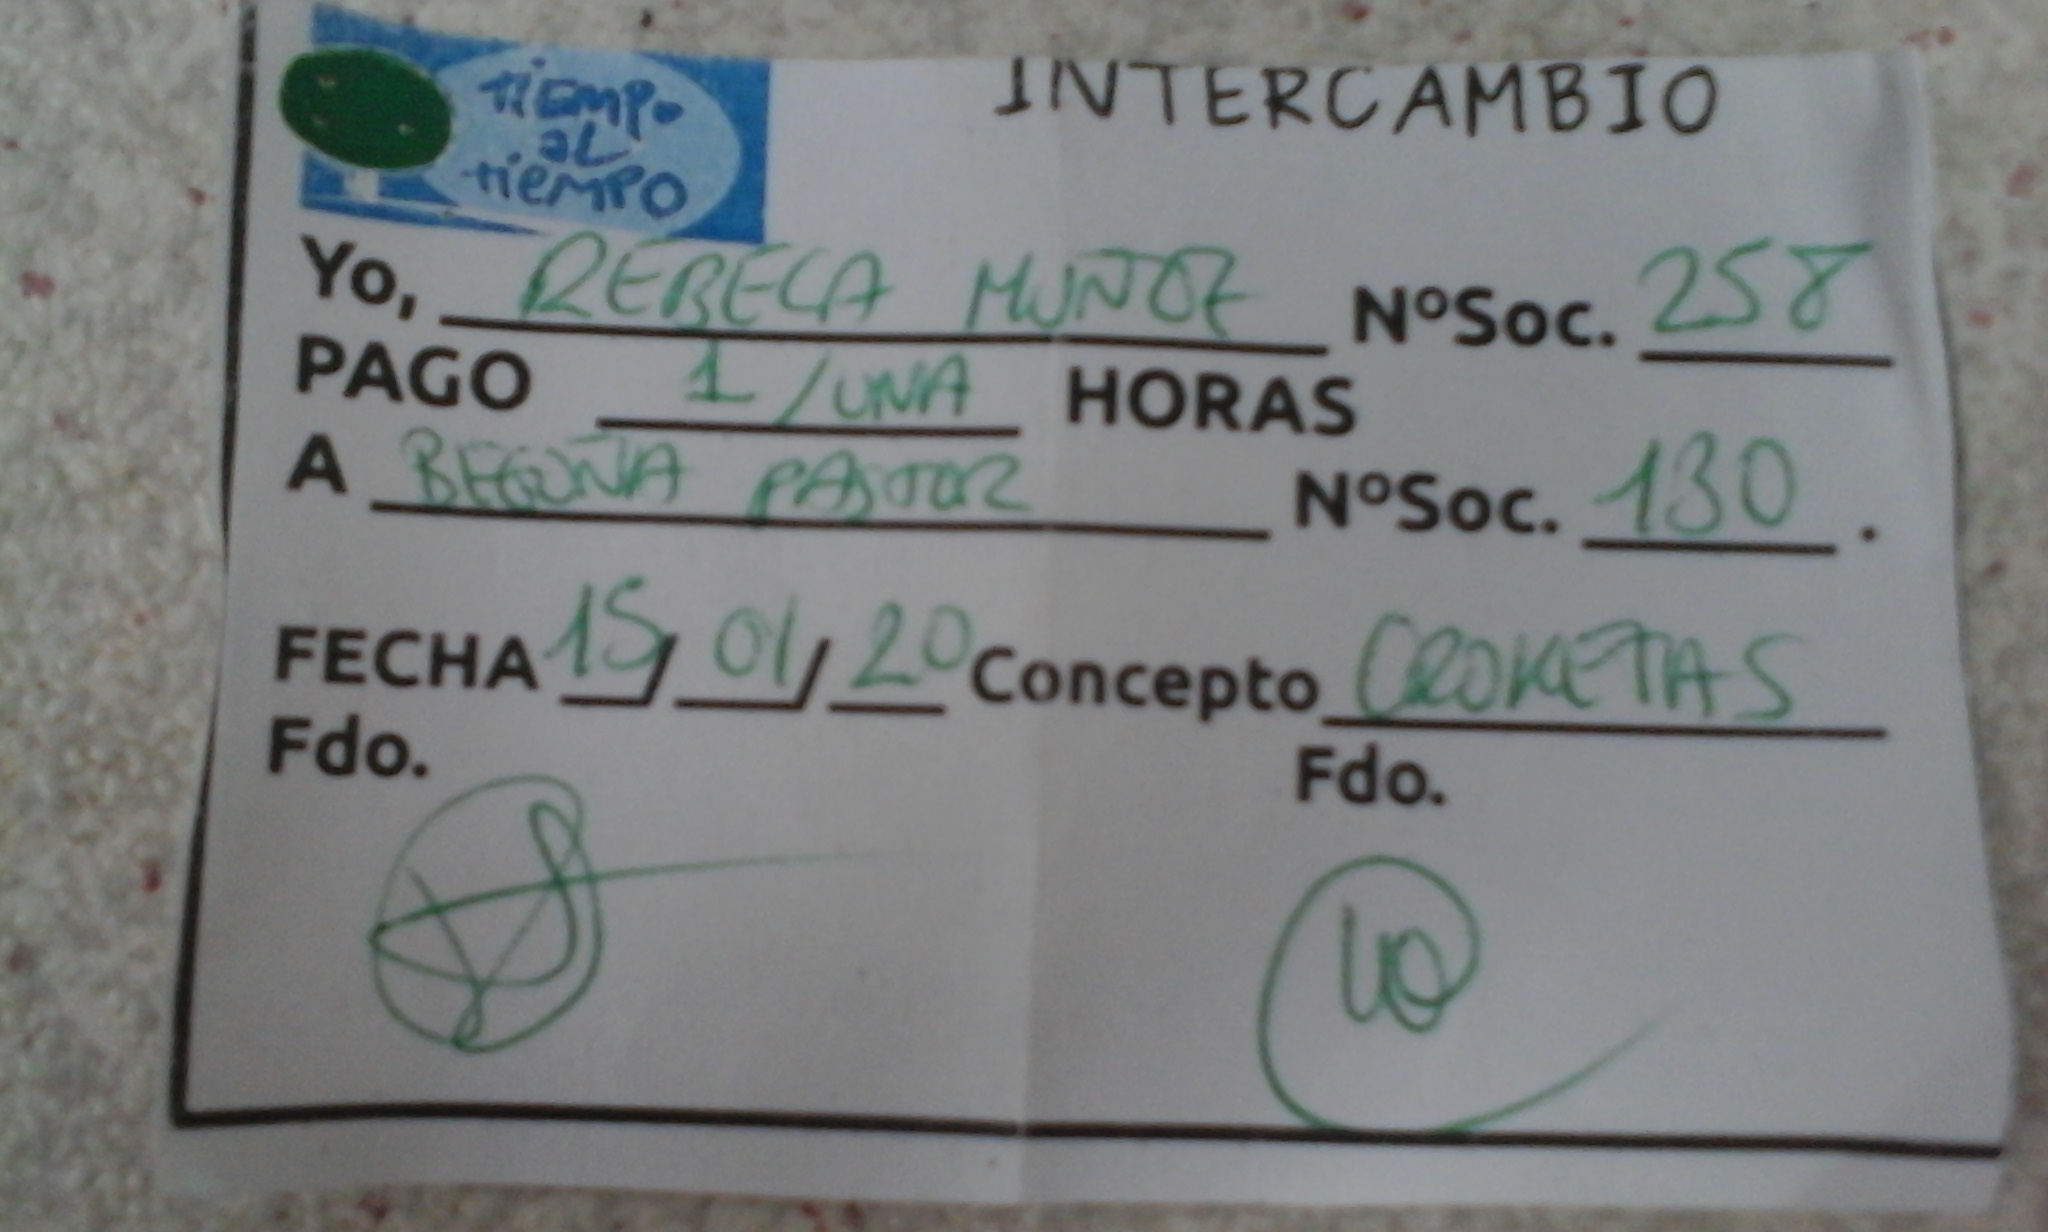 tiempo
al
tiempo
INTERCAMBIO
Yo, REBECA MUÑOZ NºSoc. 258
PAGO 1/UNA HORAS
A BEGOÑA PASTOR NºSoc. 130.
FECHA 15/01/20 Concepto CROKETAS
Fdo. Fdo.